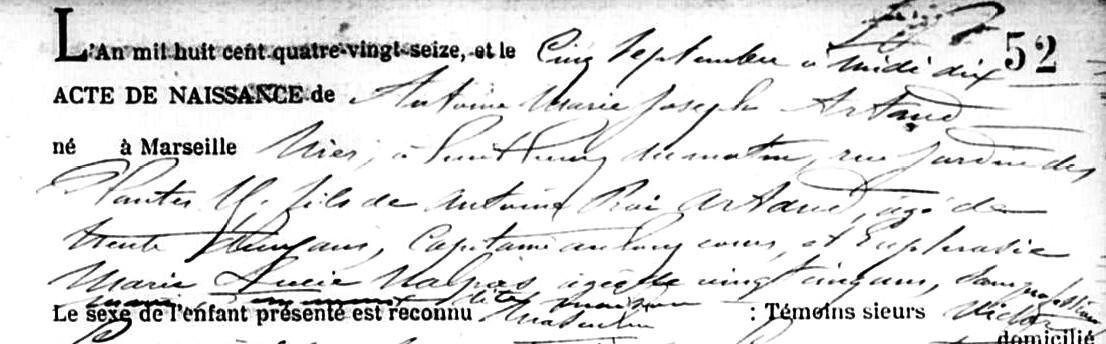 52
L'An mil huit cent quatre-vingt-seize, et le Cinq Septembre à midi dix
ACTE DE NAISSANCE de Antoine Marie Joseph Artaud
né à Marseille hier, à huit heures du matin, rue Jardin des
Plantes fils de Antoine Roi Artaud, âgé de
trente ans, Capitaine au long cours, et Euphrasie
Marie Lucie Nalpas, âgée de vingt cinq ans, sans profession
Le sexe de l'enfant présenté est reconnu masculin : Témoins sieurs Victor
domicilié